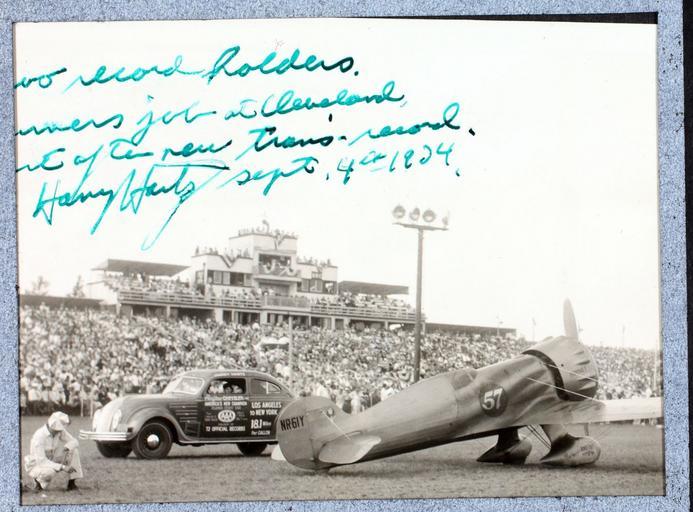 wo record holders.
urners job at Cleveland,
rt after new trans-record.
Harry Hartz sept. 4th 1934.
CHRYSLER
AMERICA'S NEW CHAMPION
AAA
72 OFFICIAL RECORDS
LOS ANGELES
to NEW YORK
18.1 Miles
Per GALLON
57
NR61Y